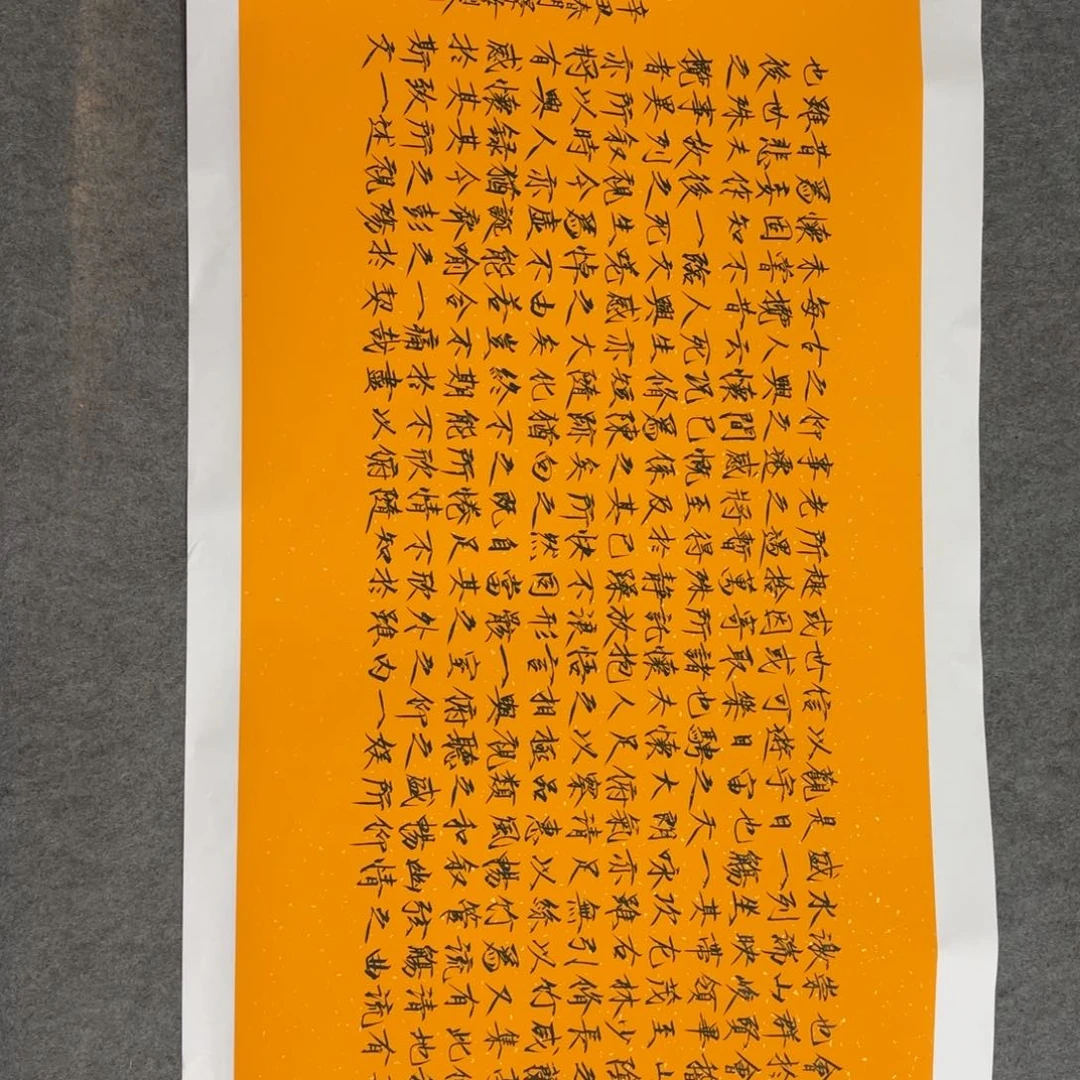 也群賢畢至少長咸集此地有
崇山峻領茂林脩竹又有清流
激湍映帶左右引以爲流觴曲
水列坐其次雖無絲竹管弦之
盛一觴一詠亦足以暢敘幽情
是日也天朗氣清惠風和暢仰
觀宇宙之大俯察品類之盛所
以遊目騁懷足以極視聽之娛
信可樂也夫人之相與俯仰一
世或取諸懷抱悟言一室之內
或因寄所託放浪形骸之外雖
趣捨萬殊靜躁不同當其欣於
所遇暫得於己快然自足不知
老之將至及其所之既惓情隨
事遷感慨係之矣向之所欣俯
仰之間已爲陳跡猶不能不以
之興懷況脩短隨化終期於盡
古人云死生亦大矣豈不痛哉
每攬昔人興感之由若合一契
未嘗不臨文嗟悼不能喻之於
懷固知一死生爲虛誕齊彭殤
爲妄作後之視今亦猶今之視
昔悲夫故列敘時人錄其所述
雖世殊事異所以興懷其致一
也後之攬者亦將有感於斯文
辛丑春月